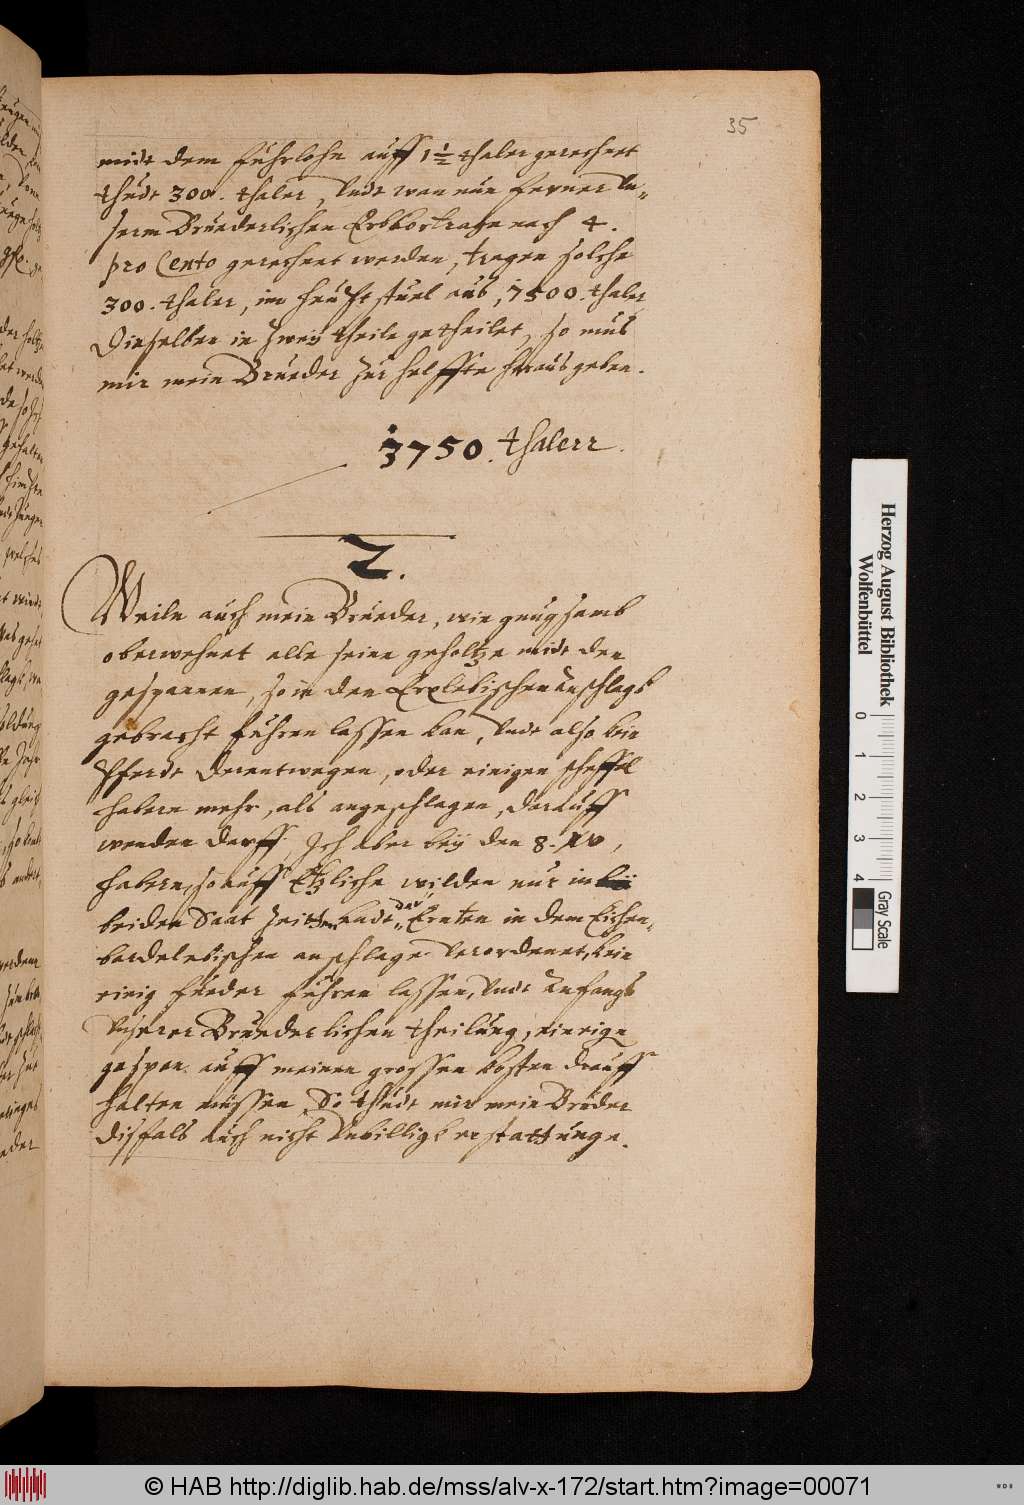 35
midt dem fuhrlohn auff 1½ thaler gerechnet
thudt 300. thaler, Undt wan nun ferner Un„
serm Brüederlichen Erbvortrage nach 4.
pro Cento gerechnet werden, tragen solche
300. thaler, im heuptstuel aus, 7500. thaler
Dieselben in zweÿ theile getheilet, so mus
mir mein Brueder zur helffte heraus geben.
3750. thalerr.
2.
Weiln auch mein Brueder, wie gnugsamb
oberwehnet alle seine geholtze midt den
gespannen, so in den Erxlebischen anschlagk
gebracht fuhren lassen kan, Undt also kein
Pferdt derentwegen, oder einigen scheffel
habern mehr, als angeschlagen, darauff
wenden darff, Ich aber beÿ den 8.
habern, so auff Etzliche wilden nur in
beiden Saat Zeitten undt der Ernten in dem Eichen„
bardelebischen anschlage verordenet, kein
einig fueder fuhren lassen, Undt anfangs
Unserer Bruederlichen theilung, einige
gespan auff meinen grossen kosten drauff
halten müssen, So thudt mir mein Bruder
disfals auch nicht Unbilligk erstattunge.
Herzog August Bibliothek
Wolfenbüttel
0 1 2 3 4
Gray Scale
© HAB http://diglib.hab.de/mss/alv-x-172/start.htm?image=00071